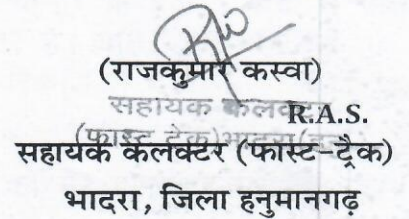 (राजकुमार कस्वा)
सहायक कलक्टर
R.A.S.
(फास्ट ट्रेक) भादरा
सहायक कलक्टर (फास्ट-ट्रैक)
भादरा, जिला हनुमानगढ़